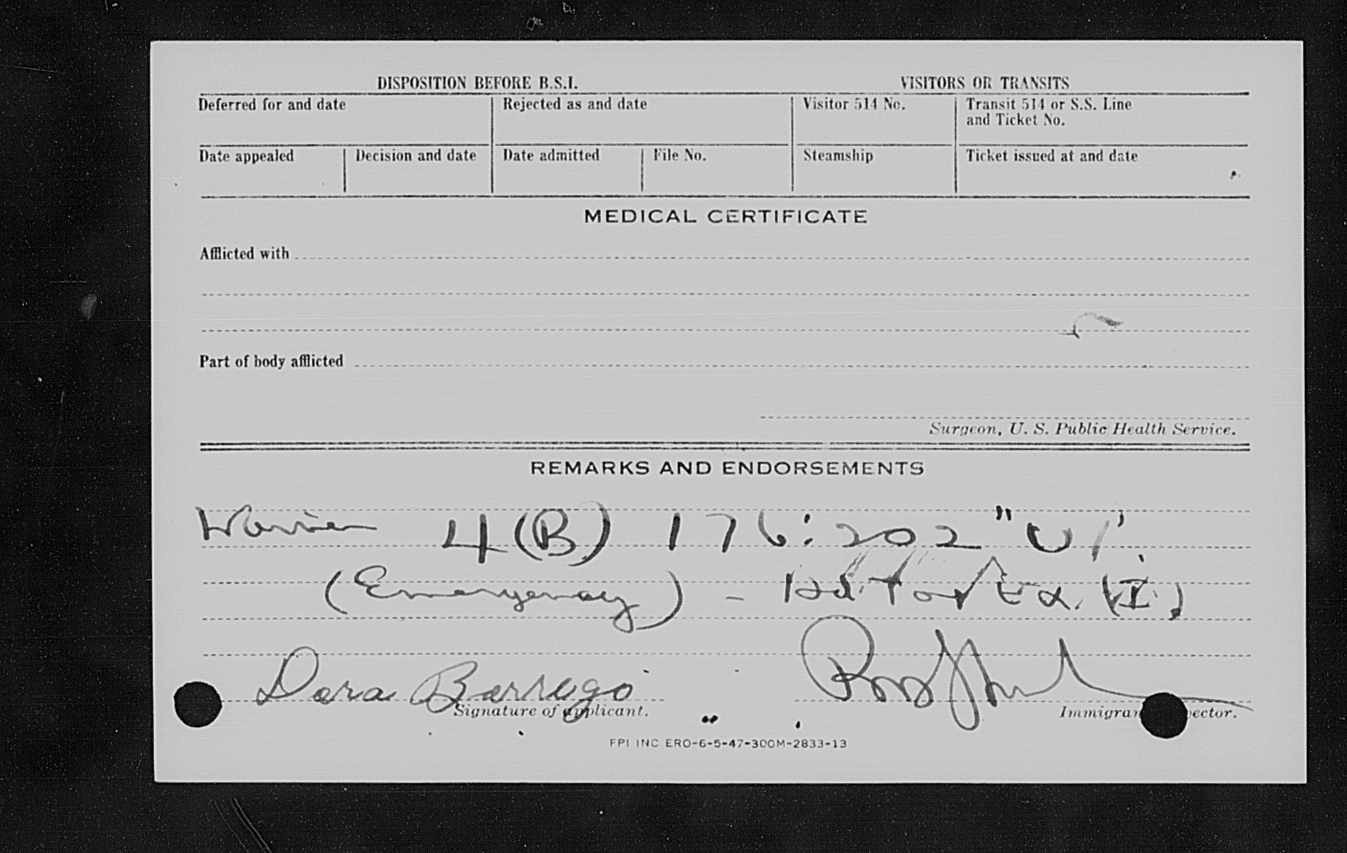 DISPOSITION BEFORE B.S.I. VISITORS OR TRANSITS
Deferred for and date Rejected as and date Visitor 514 No. Transit 514 or S.S. Line
and Ticket No.
Date appealed Decision and date Date admitted File No. Steamship Ticket issued at and date
MEDICAL CERTIFICATE
Afflicted with
Part of body afflicted
Surgeon, U. S. Public Health Service.
REMARKS AND ENDORSEMENTS
4(B) 176:202 "U"
(Emergency) -
Dora Barrego
Signature of applicant. Immigrant Inspector.
FPI INC ERO-6-5-47-300M-2833-13